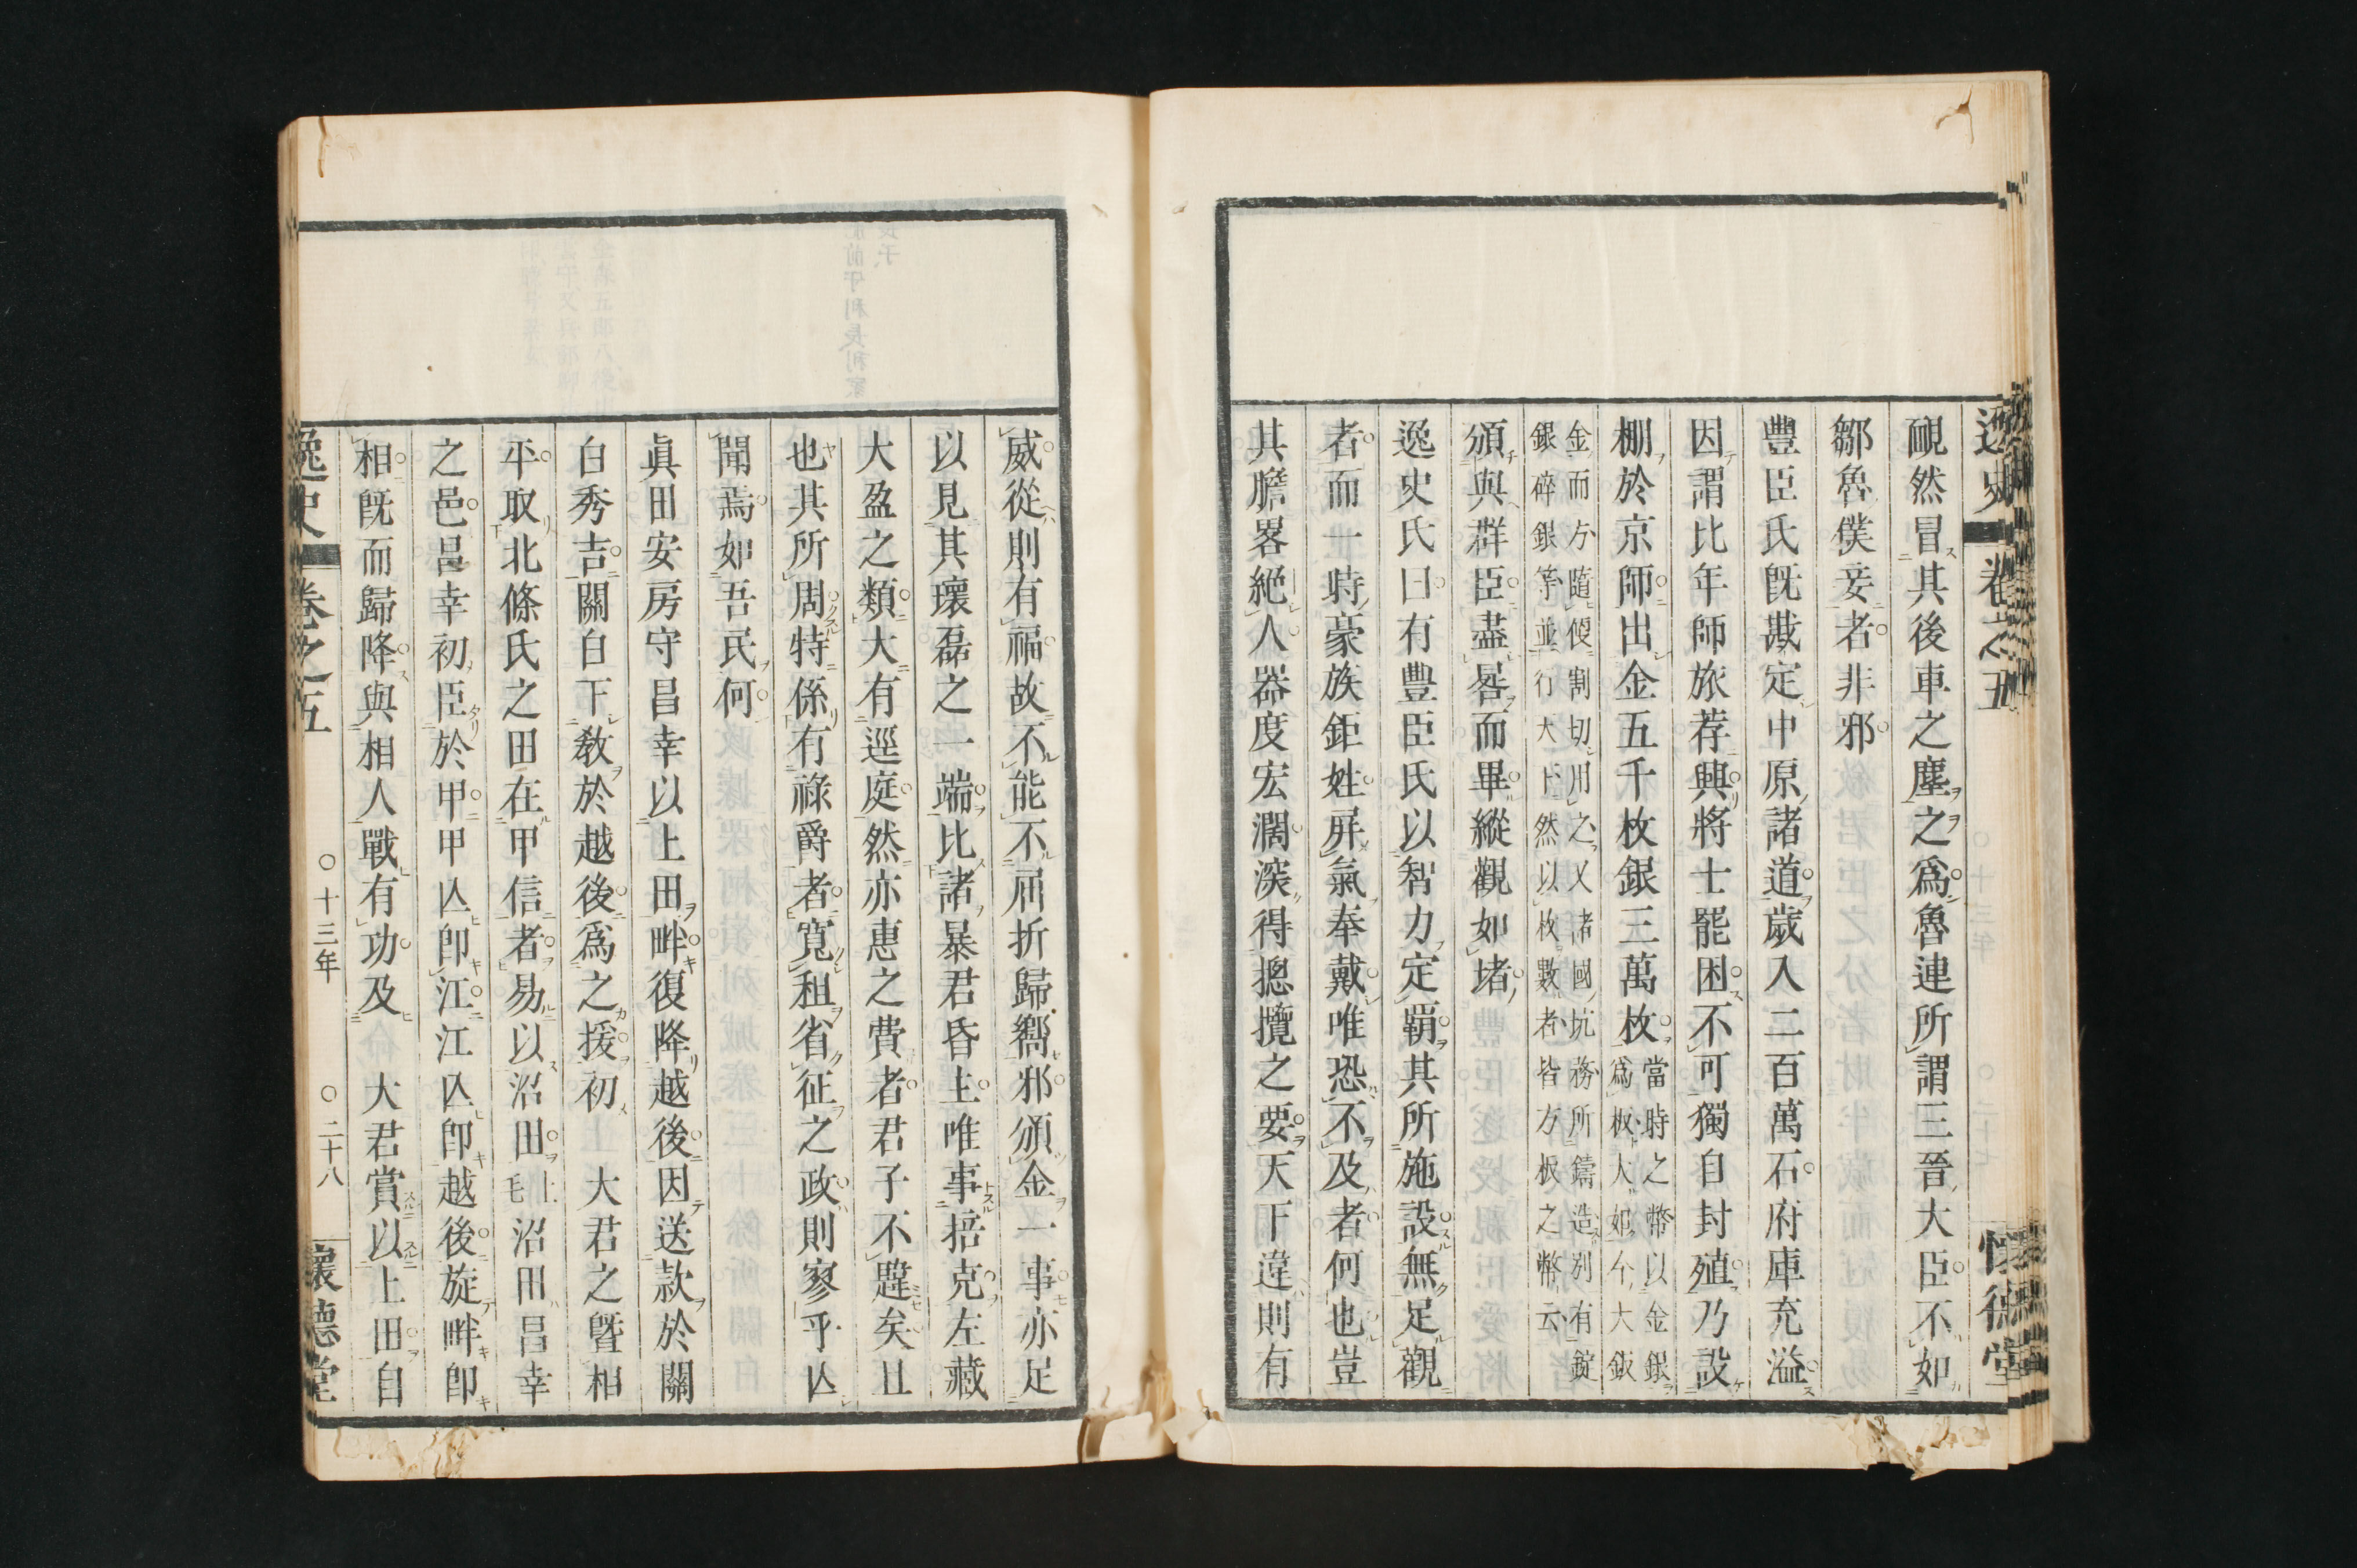 逸史 卷之五 懷德堂
覥然冒其後車之塵之爲魯連所謂三晉大臣不如
鄒魯僕妾者非邪
豐臣氏既戡定中原諸道歲入二百萬石府庫充溢
因謂比年師旅荐興將士罷困不可獨自封殖乃設
棚於京師出金五千枚銀三萬枚
當時之幣以金銀
爲板大如今大鈑
金而方隨便割切用之又諸國坑務所鑄造別有錠
銀碎銀等並行大上然以枚數者皆方板之幣云
頒與群臣盡畧而畢縱觀如堵
逸史氏曰有豐臣氏以智力定覇其所施設無足觀
者而一時豪族鉅姓屏氣奉戴唯恐不及者何也豈
其膽畧絕人器度宏濶深得摠攬之要天下違則有
威從則有福故不能不屈折歸嚮邪頒金一事亦足
以見其瓌磊之一端比諸暴君昏主唯事掊克左藏
大盈之類大有逕庭然亦惠之費者君子不韙矣且
也其所周特係有祿爵者寬租省征之政則寥乎亾
聞焉如吾民何
眞田安房守昌幸以上田畔復降越後因送款於關
白秀吉關白下敎於越後爲之援初 大君之曁相
平取北條氏之田在甲信者易以沼田上毛沼田昌幸
之邑昌幸初臣於甲甲亾卽江江亾卽越後旋畔卽
相既而歸降與相人戰有功及 大君賞以上田自
逸史 卷之五 ○十三年 ○二十八 懷德堂